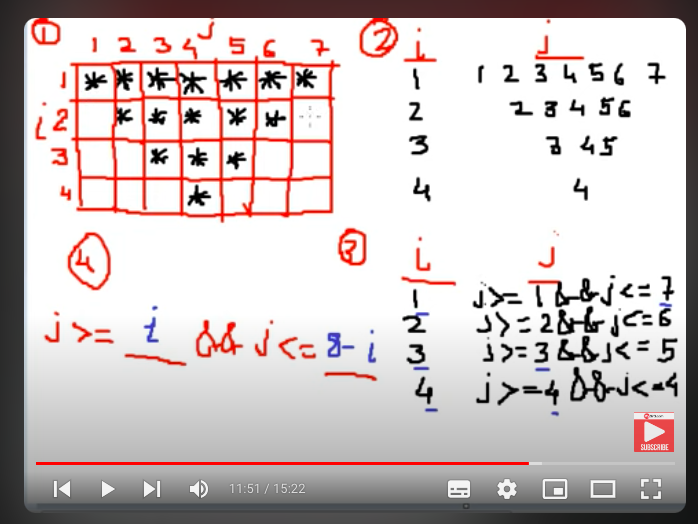 ① j
1 2 3 4 5 6 7
1 * * * * * * *
i 2 * * * * *
3 * * *
4 *
② i j
1 1 2 3 4 5 6 7
2 2 3 4 5 6
3 3 4 5
4 4
③ i j
1 j>= 1 && j<= 7
2 j>= 2 && j<= 6
3 j>= 3 && j<= 5
4 j>= 4 && j<= 4
④
j >= i && j <= 8 - i
SUBSCRIBE
11:51 / 15:22